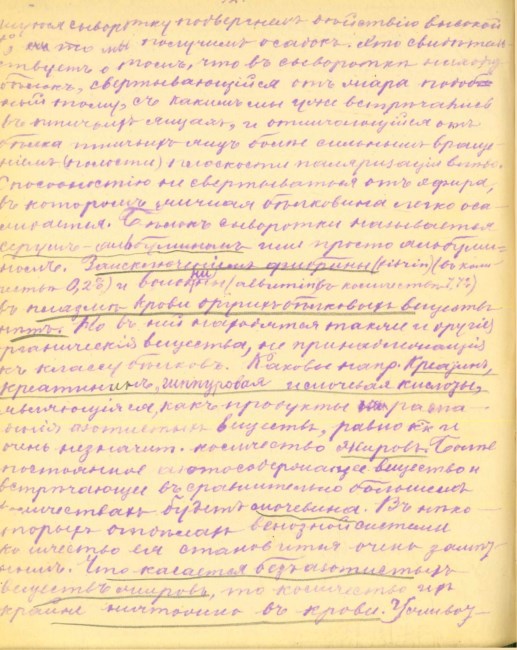 сыворотку подвергнемъ дѣйствію высокой
t° то мы получимъ осадокъ. Это свидѣтель-
ствуетъ о томъ, что въ сывороткѣ
бѣлокъ, свертывающійся отъ жара подоб-
ный тому, съ какимъ мы уже встрѣчались
въ птичьихъ яйцахъ, и отличающійся отъ
бѣлка птичьихъ яицъ болѣе сильнымъ враще-
ніемъ (плости) плоскости поляризаціи влѣво.
Способностію не свертываться отъ эфира,
въ которомъ яичная бѣлковина легко оса-
ждается. Бѣлокъ сыворотки называется
серумъ-альбуминомъ или просто альбуми-
номъ. За исключеніемъ фибрина (fibrin) (въ коли-
чествѣ 0,2%) и
въ плазмѣ крови другихъ бѣлковыхъ веществъ
нѣтъ. Но въ ней находятся также и другія
органическія вещества, не принадлежащія
къ классу бѣлковъ. Каковы напр. Креатинъ,
креатининъ, гиппуровая и мочевая кислоты,
являющіяся, какъ продукты распа-
денія азотистыхъ веществъ, равно и
очень незначит. количество жировъ. Болѣе
постоянное азотосодержащее вещество и
встрѣчающее въ сравнительно большемъ
количествахъ будетъ мочевина. Въ нѣко-
торыхъ отдѣлахъ венозной системы
количество ея становится очень замѣт-
нымъ. Что касается безъазотистыхъ
веществъ жировъ, то количество ихъ
крайне ничтожно въ крови.